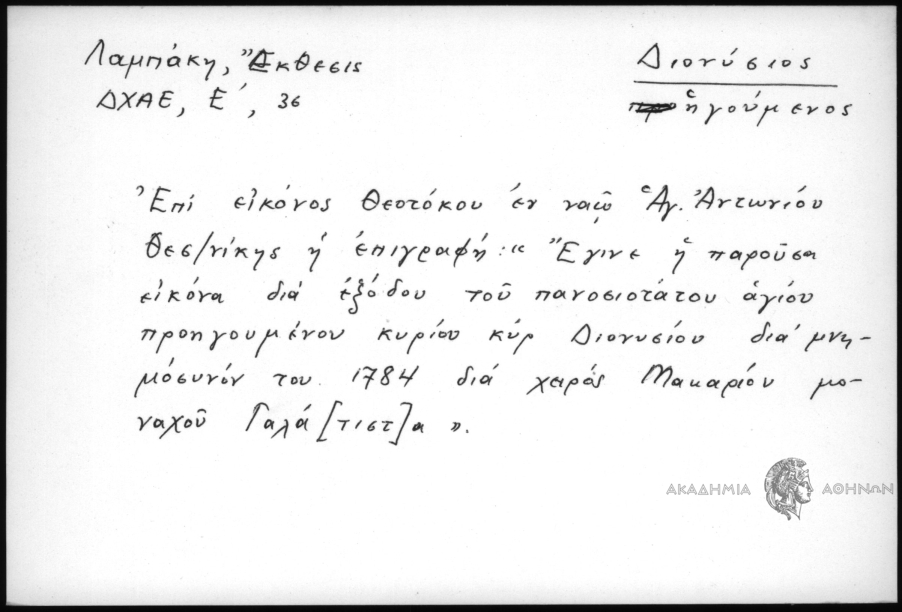 Λαμπάκη, Ἔκθεσις
ΔΧΑΕ, Ε΄, 36
Διονύσιος
ἡγούμενος
Ἐπί εἰκόνος Θεοτόκου ἐν ναῷ Ἁγ. Ἀντωνίου
Θεσ/νίκης ἡ ἐπιγραφή: « Ἔγινε ἡ παροῦσα
εἰκόνα διά ἐξόδου τοῦ πανοσιοτάτου ἁγίου
προηγουμένου κυρίου κύρ Διονυσίου διά μνη-
μόσυνόν του 1784 διά χειρός Μακαρίου μο-
ναχοῦ Γαλά[τιστ]α ».
ΑΚΑΔΗΜΙΑ ΑΘΗΝΩΝ